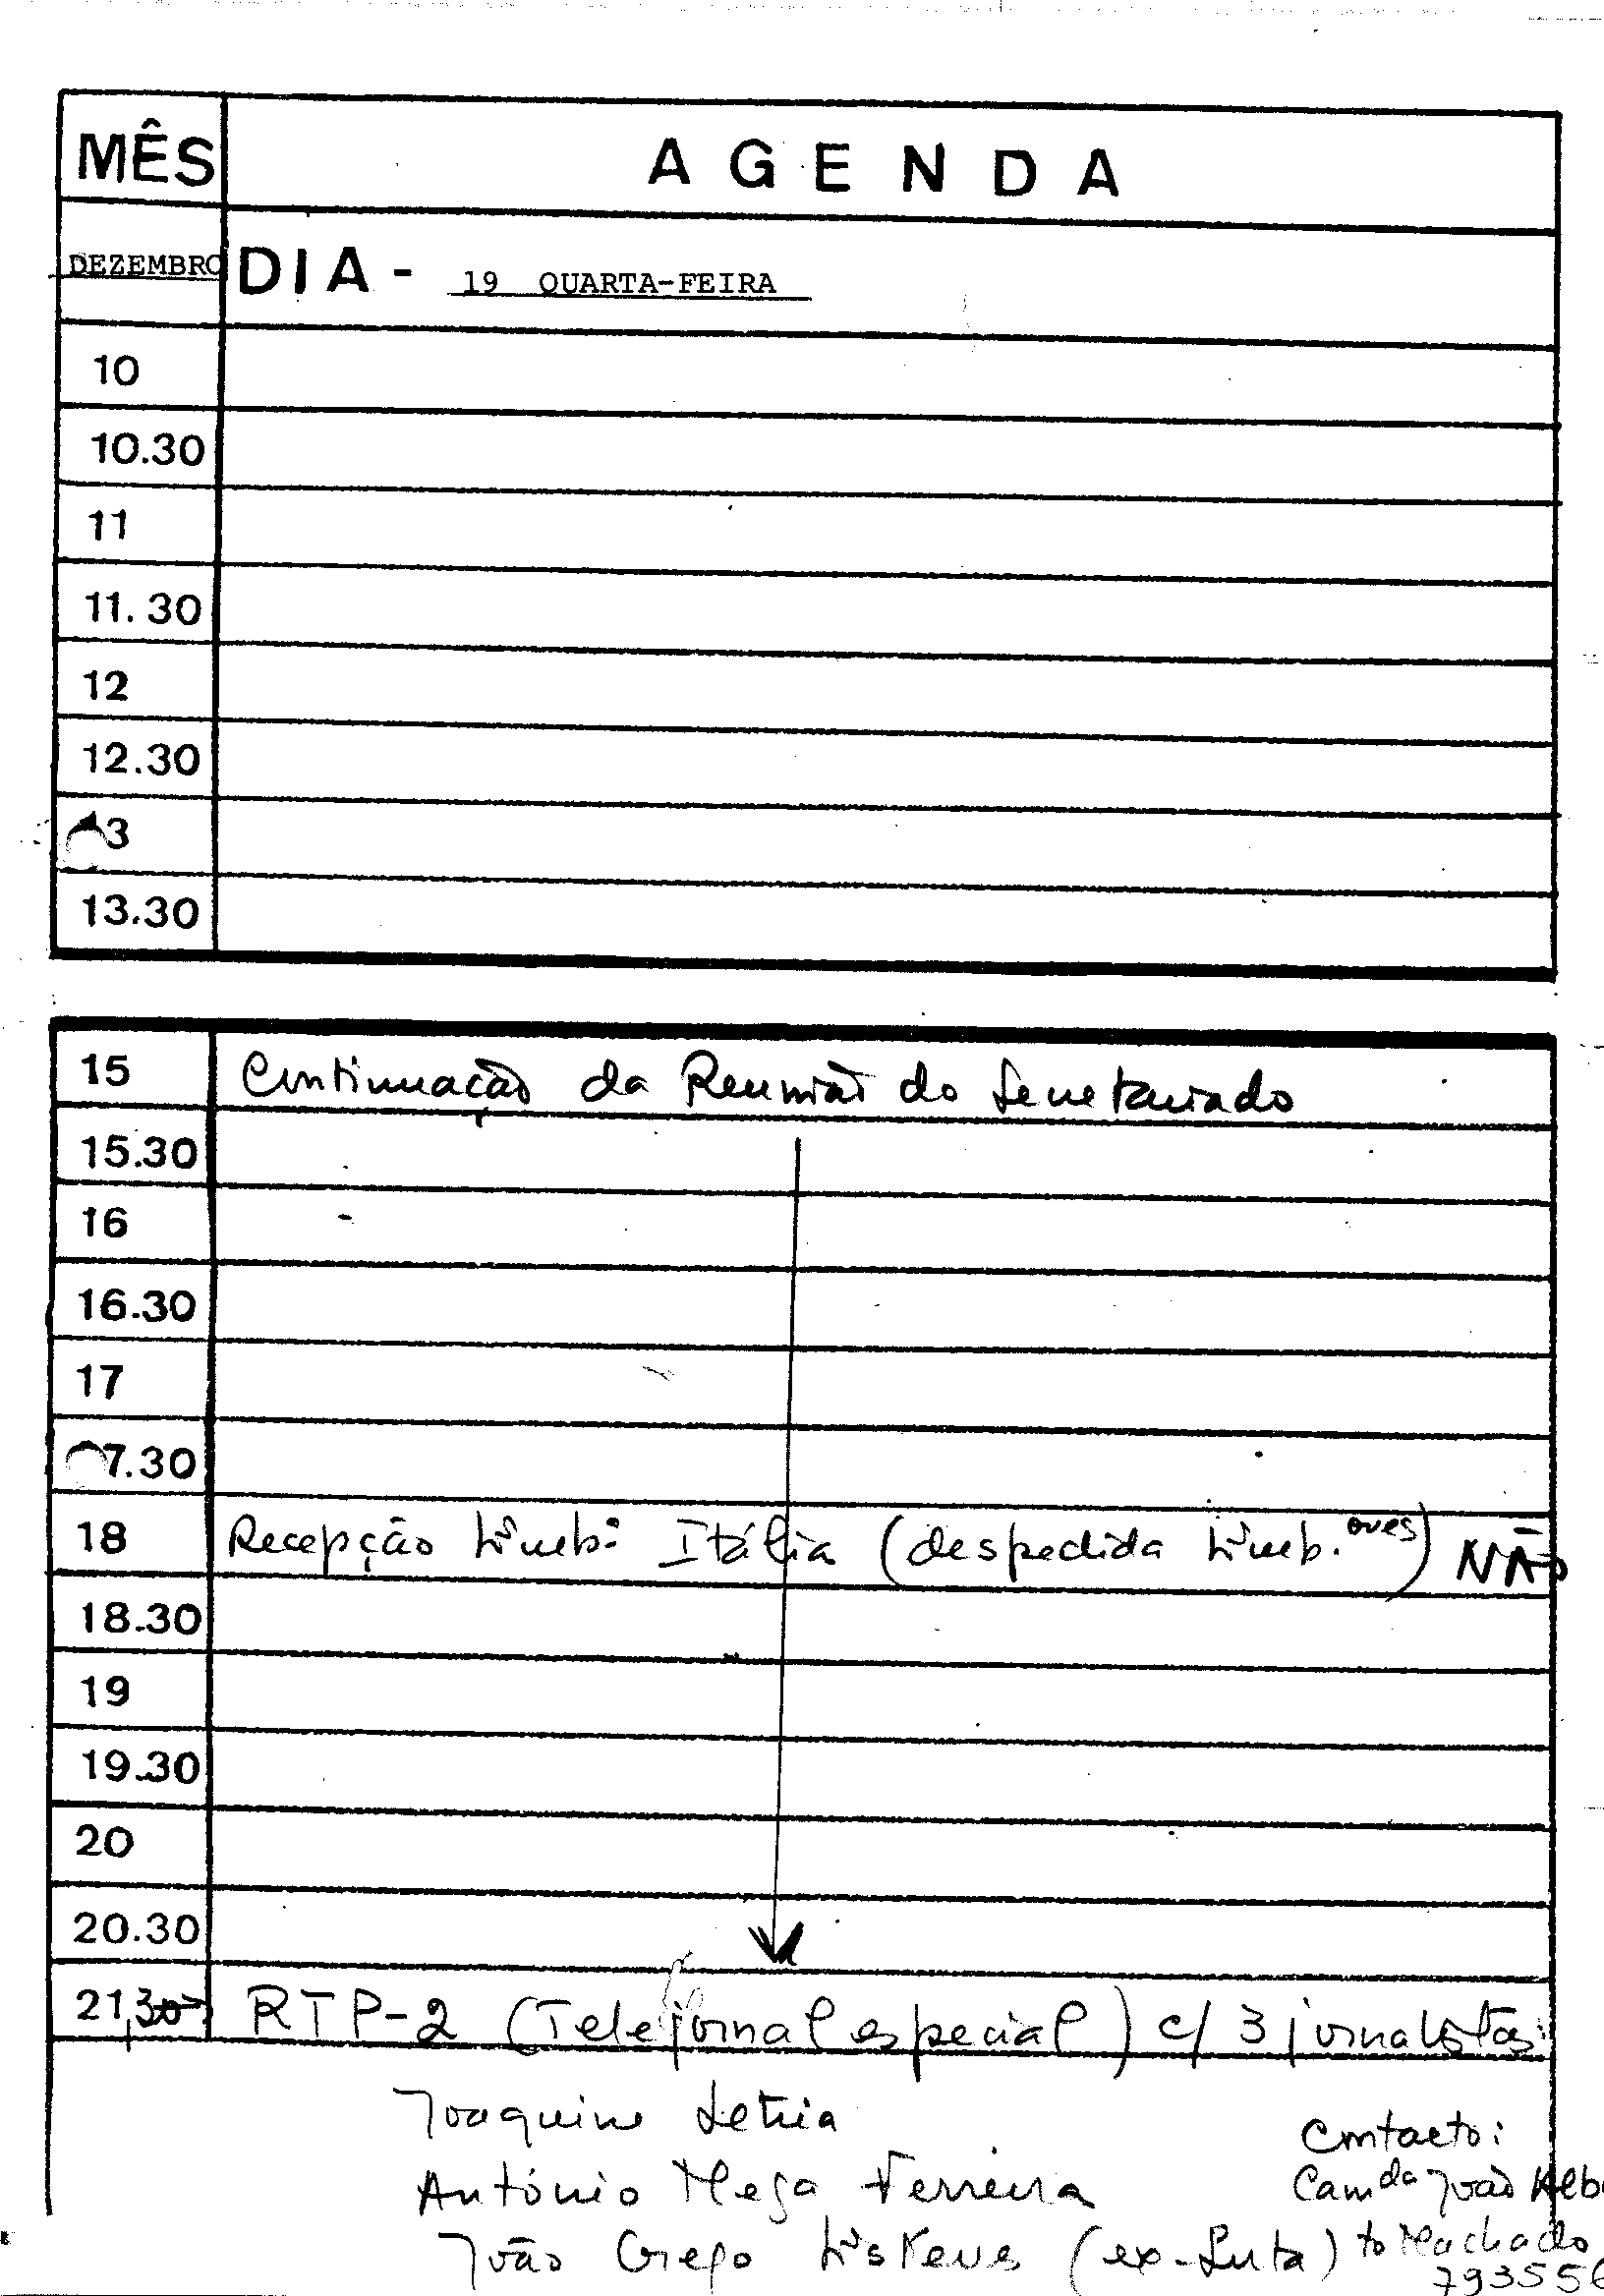 MÊS AGENDA
DEZEMBRO DIA - 19 QUARTA-FEIRA
10
10.30
11
11.30
12
12.30
3
13.30
15 Continuação da Reunião do Secretariado
15.30
16
16.30
17
7.30
18 Recepção Itália (despedida NÃO
18.30
19
19.30
20
20.30
21,30 RTP-2 (Telejornal especial) c/ 3 jornalistas:
Joaquim Letria
António Mega Ferreira
Contacto:
Cam da João Alb
João (ex-Luta) to Machado
793556